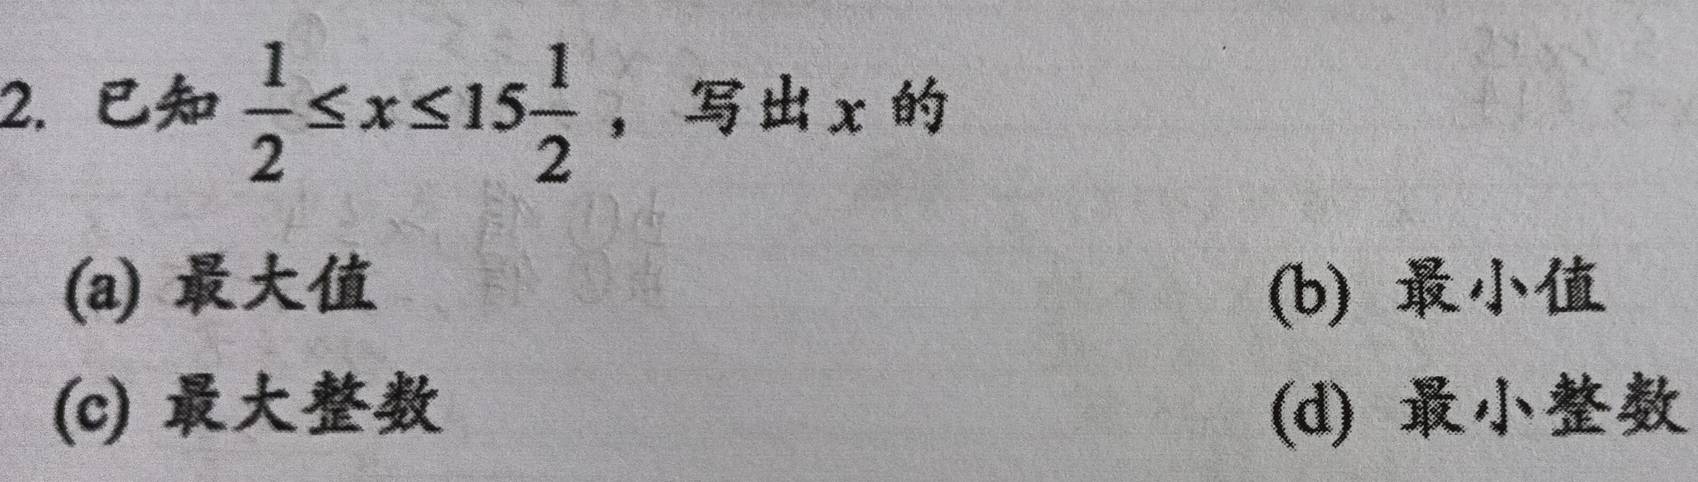 2. 已知 $\frac{1}{2} \le x \le 15\frac{1}{2}$ ， 写出 x 的
(a) 最大值 (b) 最小值
(c) 最大整数 (d) 最小整数